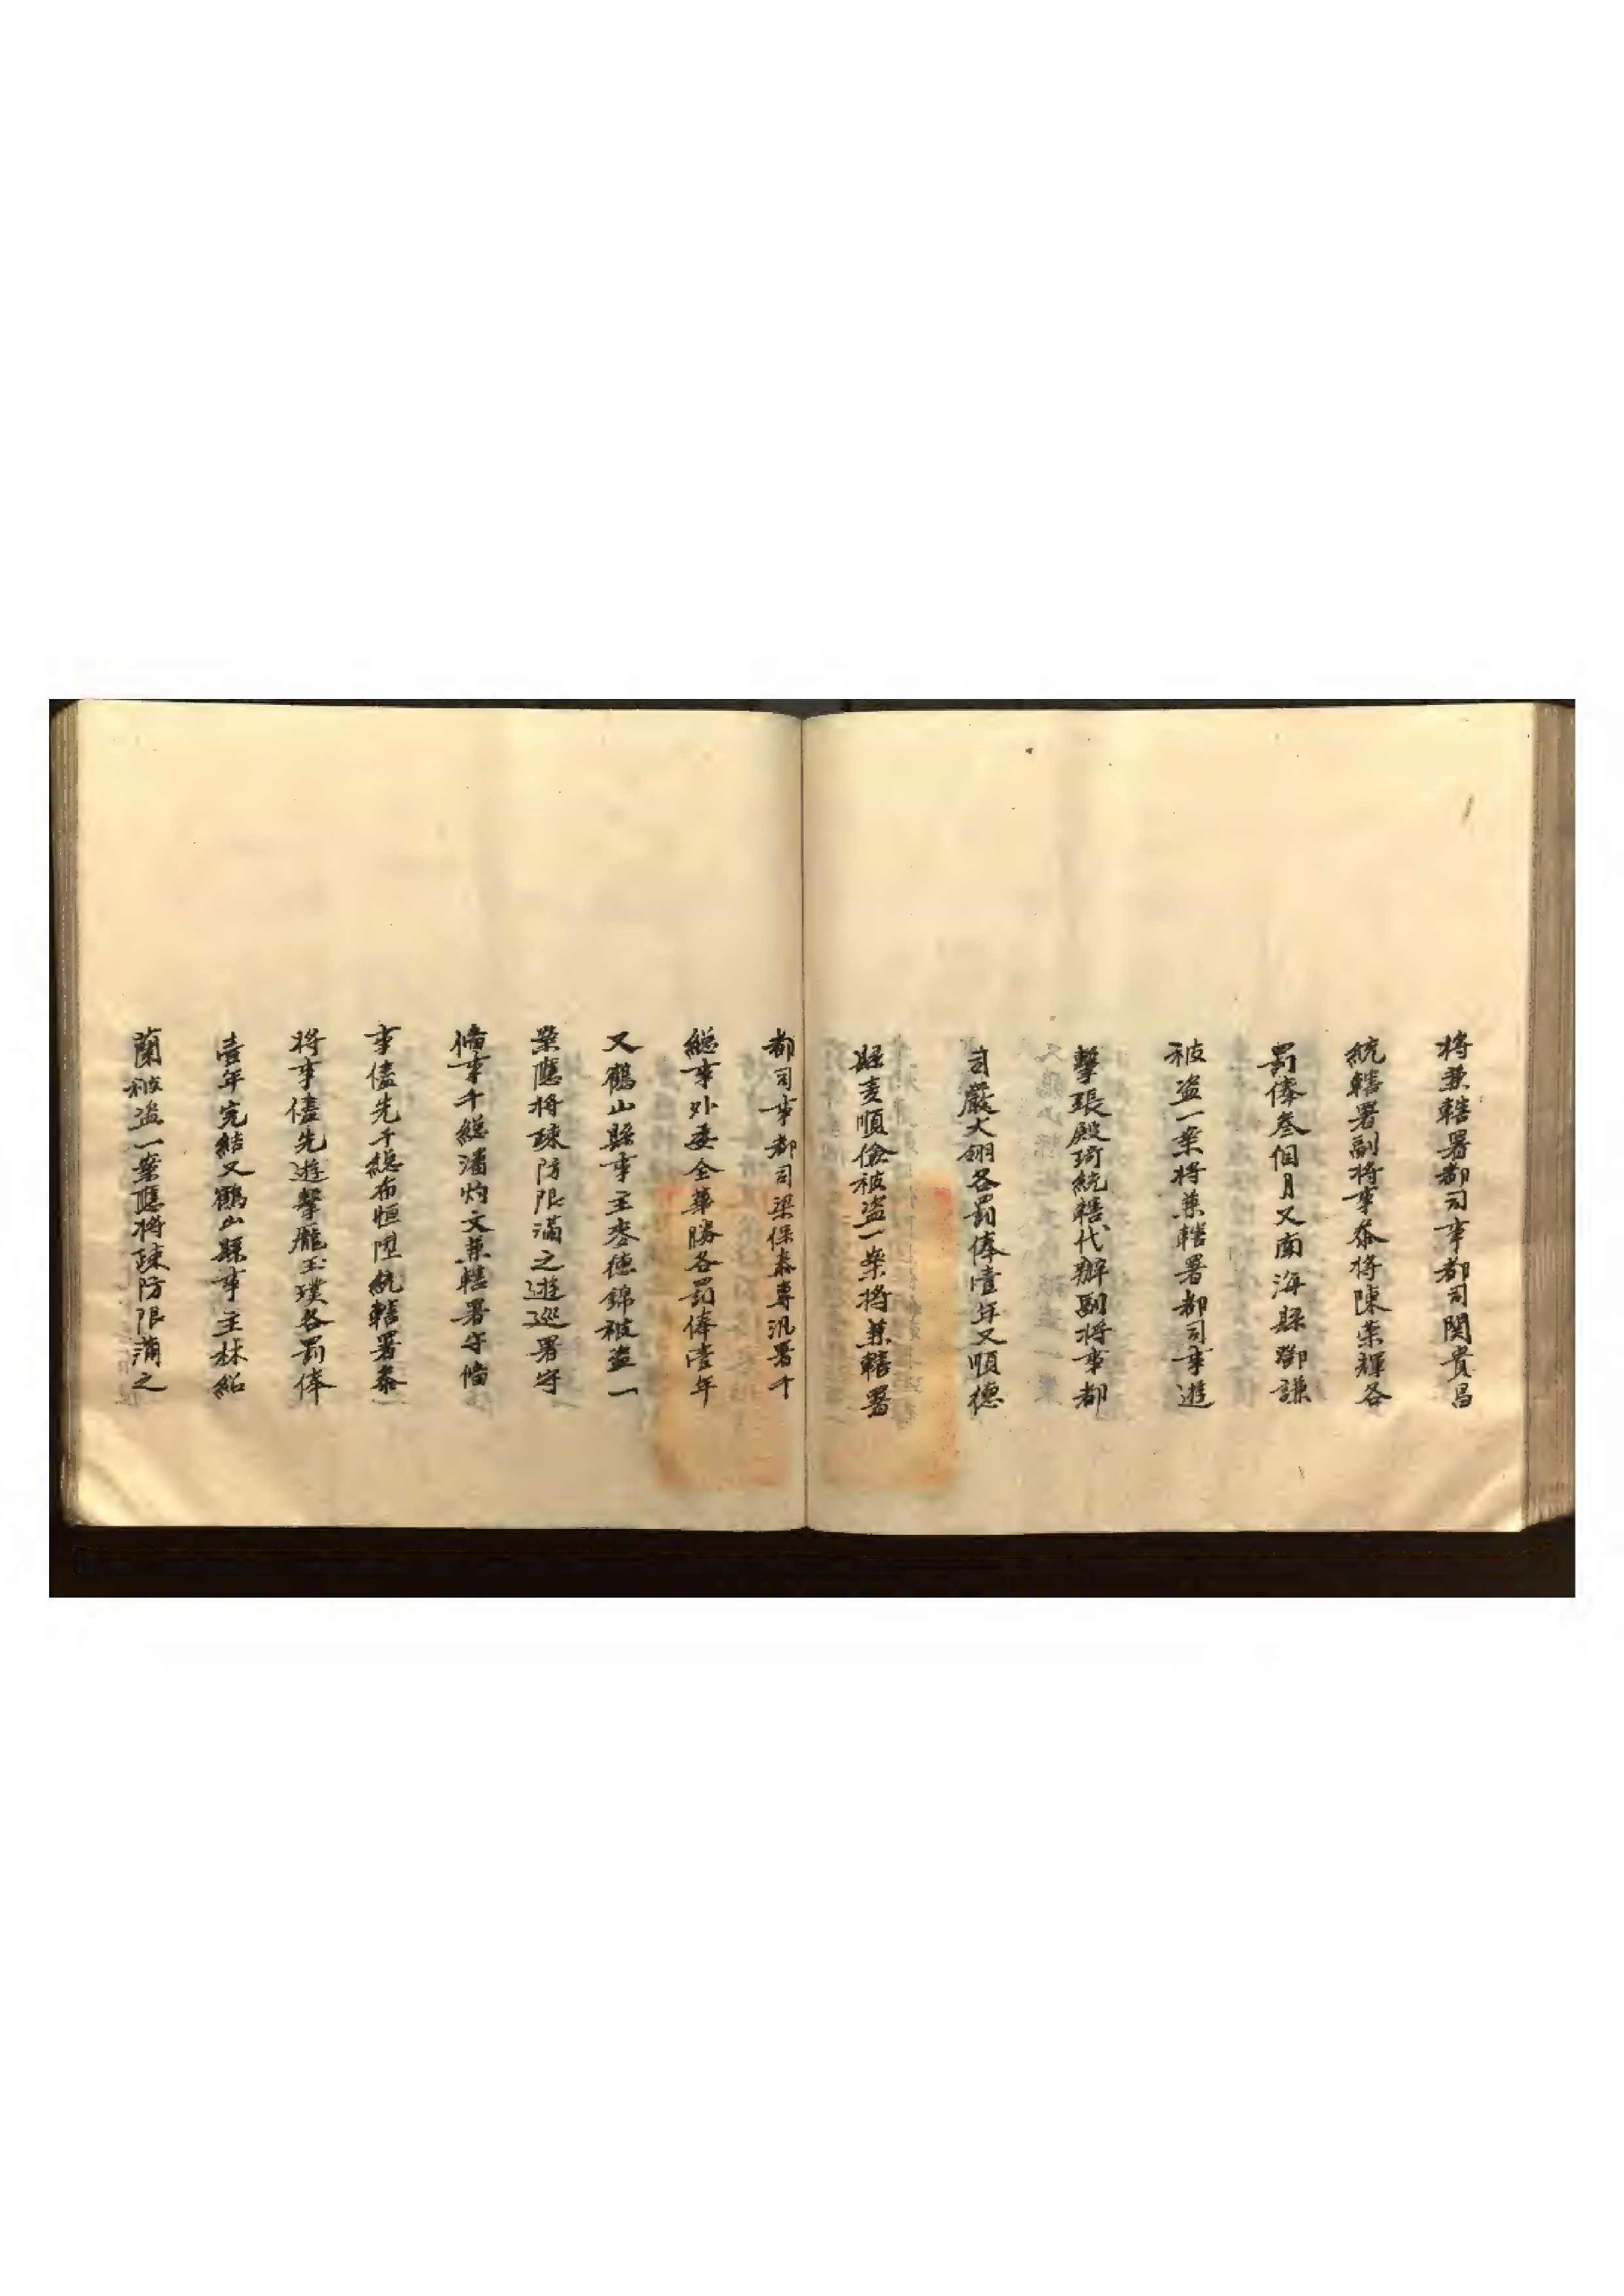 将兼轄署都司事都司関貴昌
統轄署副将事叅将陳荣輝各
罰俸叁個月又南海縣鄧謙
被盗一案将兼轄署都司事遊
擊張殿琦統轄代辦副将事都
司嚴大翎各罰俸壹年又順德
縣麦順儉被盗一案将兼轄署
都司事都司梁保泰專汛署千
總事外委全華勝各罰俸壹年
又鶴山縣事主麥德錦被盗一
案應将疎防限滿之遊巡署守
俻事千總潘灼文兼轄署守俻
事儘先千總布恒陞統轄署叅
将事儘先遊擊龐玉璞各罰俸
壹年完結又鶴山縣事主林紹
蘭被盗一案應将疎防限滿之